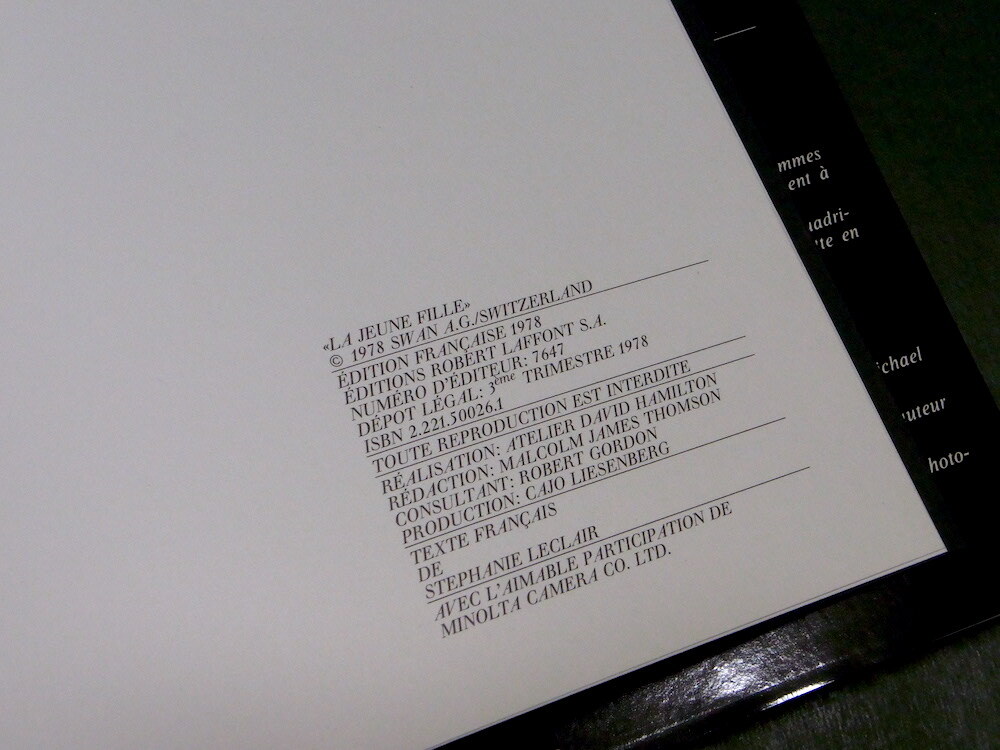 «LA JEUNE FILLE»
© 1978 SWAN A.G./SWITZERLAND
ÉDITION FRANÇAISE 1978
ÉDITIONS ROBERT LAFFONT S.A.
NUMÉRO D'ÉDITEUR: 7647
DÉPOT LÉGAL: 3ème TRIMESTRE 1978
ISBN 2.221.50026.1
TOUTE REPRODUCTION EST INTERDITE
RÉALISATION: ATELIER DAVID HAMILTON
RÉDACTION: MALCOLM JAMES THOMSON
CONSULTANT: ROBERT GORDON
PRODUCTION: CAJO LIESENBERG
TEXTE FRANÇAIS
DE
STEPHANIE LECLAIR
AVEC L'AIMABLE PARTICIPATION DE
MINOLTA CAMERA CO. LTD.
mmes
ent à
adri-
te en
chael
uteur
hoto-